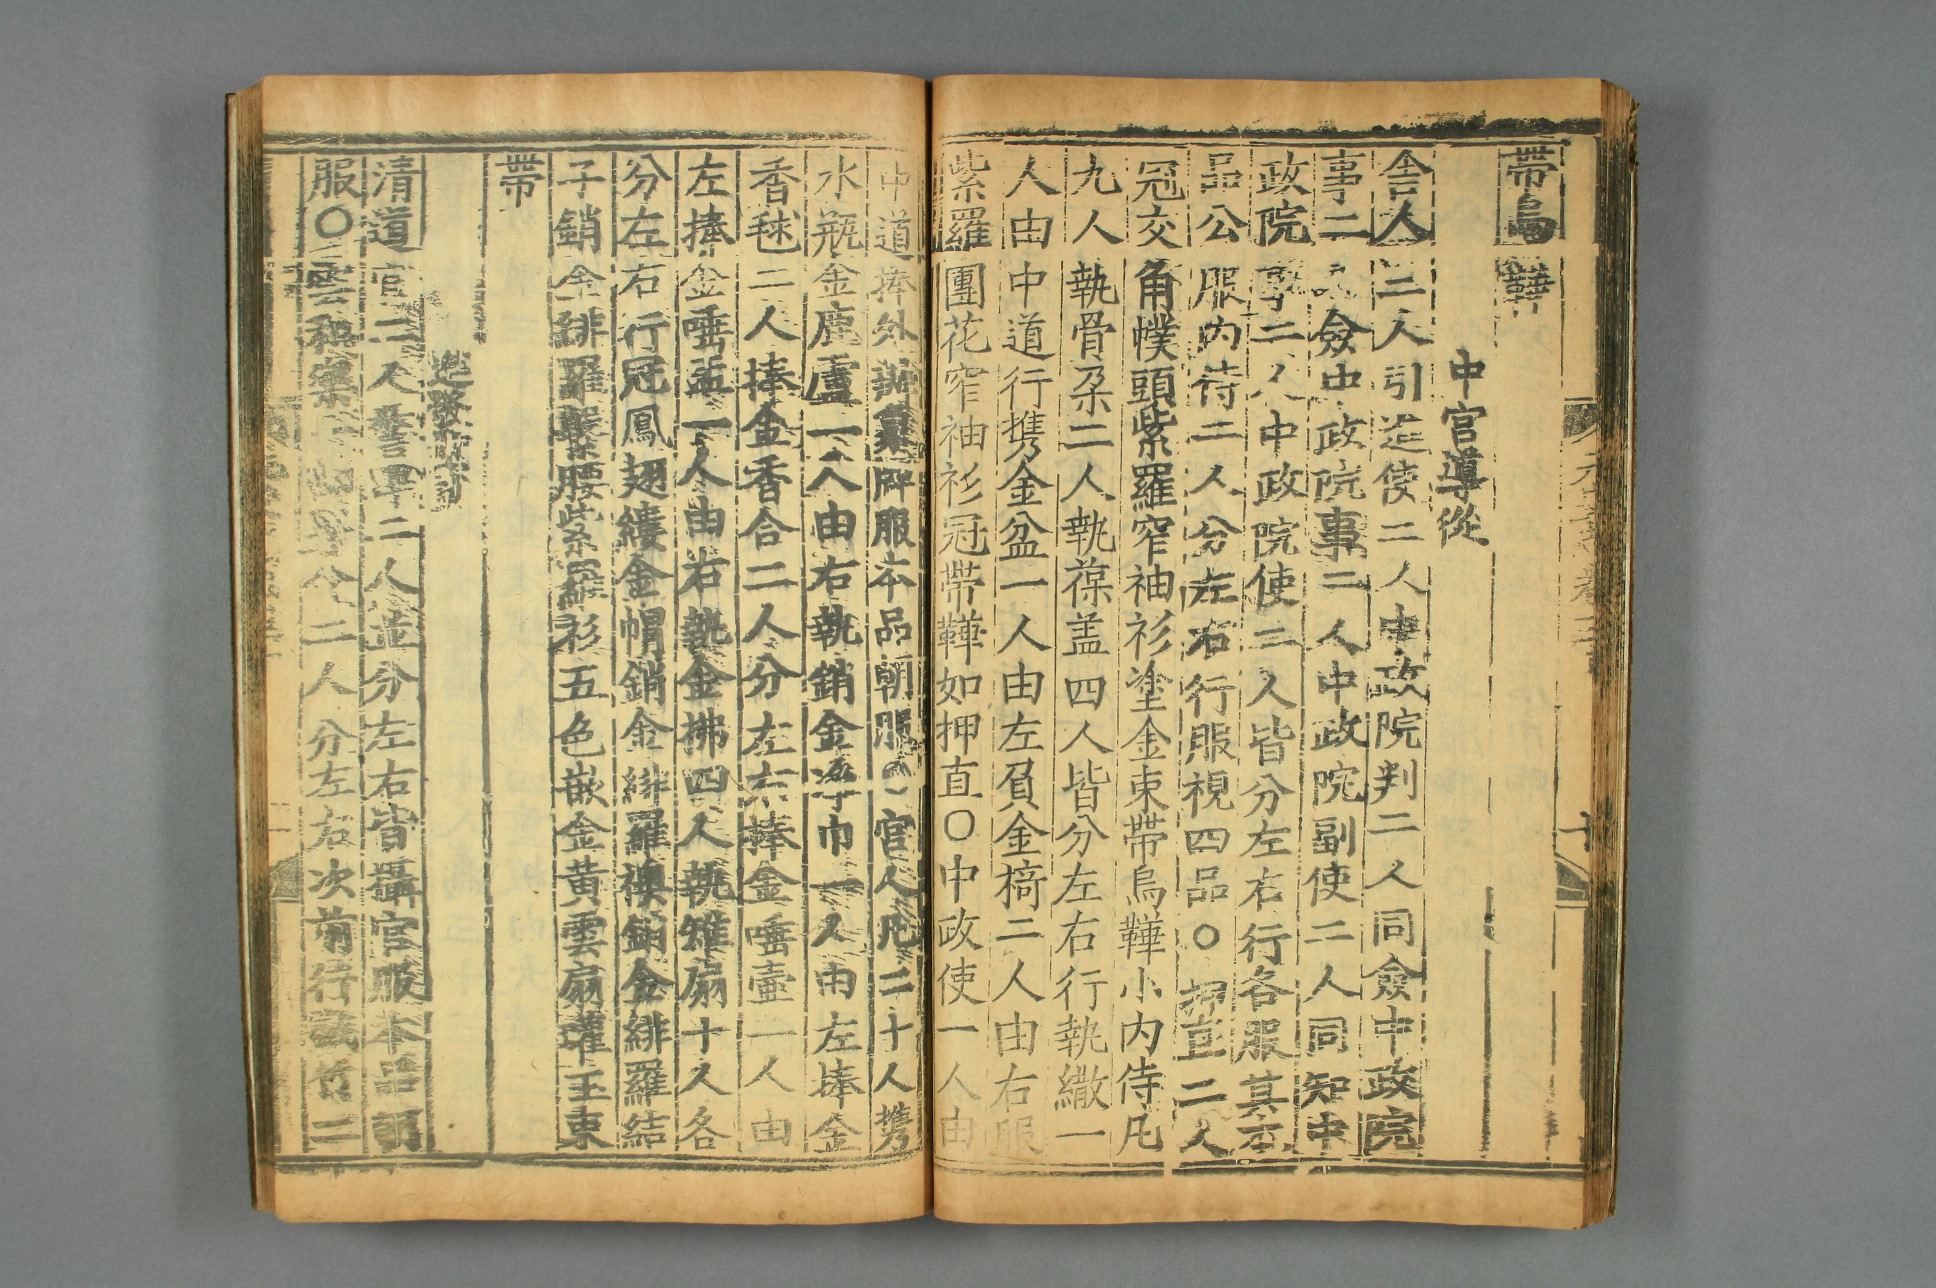 帶烏鞾
中宮導從
舍人二人引進使二人中政院判二人同僉中政院
事二人僉中政院事二人中政院副使二人同知中
政院事二人中政院使二人皆分左右行各服其本
品公服内侍二人分左右行服視四品○押直二人
冠交角幞頭紫羅窄袖衫塗金束帶烏鞾小内侍凡
九人執骨朶二人執葆盖四人皆分左右行執繖一
人由中道行携金盆一人由左負金椅二人由右服
紫羅團花窄袖衫冠帶鞾如押直○中政使一人由
中道捧外辦象牌服本品朝服○宫人凡二十人携
水瓶金鹿盧一人由右執銷金淨巾一人由左捧金
香毬二人捧金香合二人分左右捧金唾壷一人由
左捧金唾盂一人由右執金拂四人執雉扇十人各
分左右行冠鳳翅縷金帽銷金緋羅襖銷金緋羅結
子銷金緋羅繫腰紫羅衫五色嵌金黃雲扇瓘玉束
帶
進發冊寶
清道官二人警蹕二人並分左右皆攝官服本品朝
服○雲和樂 分二人分左右次前行戯竹二